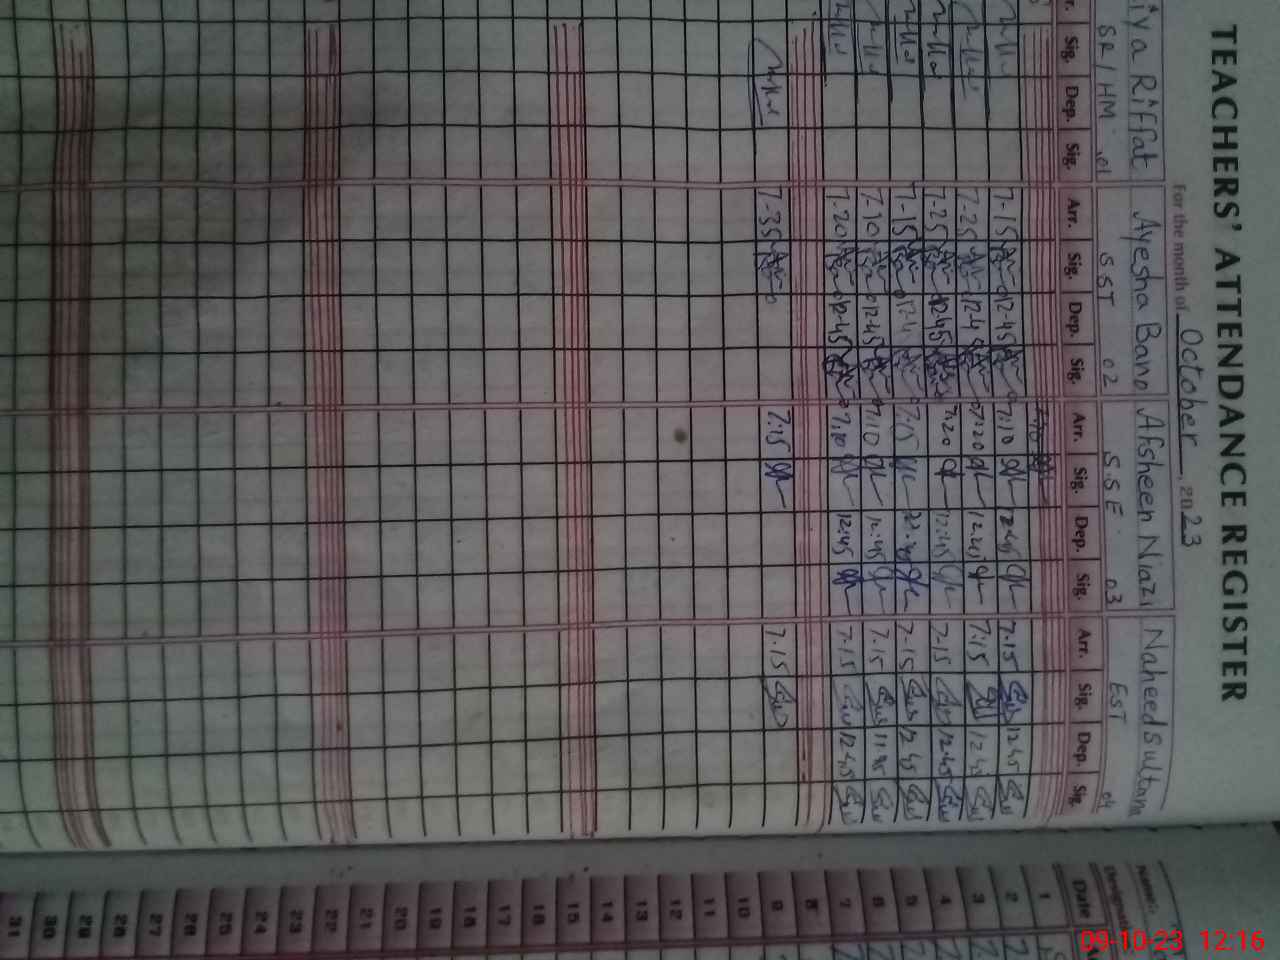 TEACHERS' ATTENDANCE REGISTER
For the month of October 2023
iya Riffat Ayesha Bano Afsheen Niazi Naheed Sultana
SR/HM 01 SST 02 S.S.E 03 EST 04
r. Sig. Dep. Sig. Arr. Sig. Dep. Sig. Arr. Sig. Dep. Sig. Arr. Sig. Dep. Sig.
7-15 12-45 7:10 12:45 7.15 12.45
7-25 12-4 7:20 12:45 7:15 12
7-25 12-45 7:20 12:45 7.15 12.45
7-15 12-4 7:15 7.15 12 45
7-10 12-45 7:10 12:45 7.15 11
7-20 12-45 7:10 12:45 7.15 12.45
7-35 7:15 7.15
Name:
Designat
Date
1
2
3
4
5
6
7
8
9
10
11
12
13
14
15
16
17
18
19
20
21
22
23
24
25
26
27
28
29
30
31
09-10-23 12:16